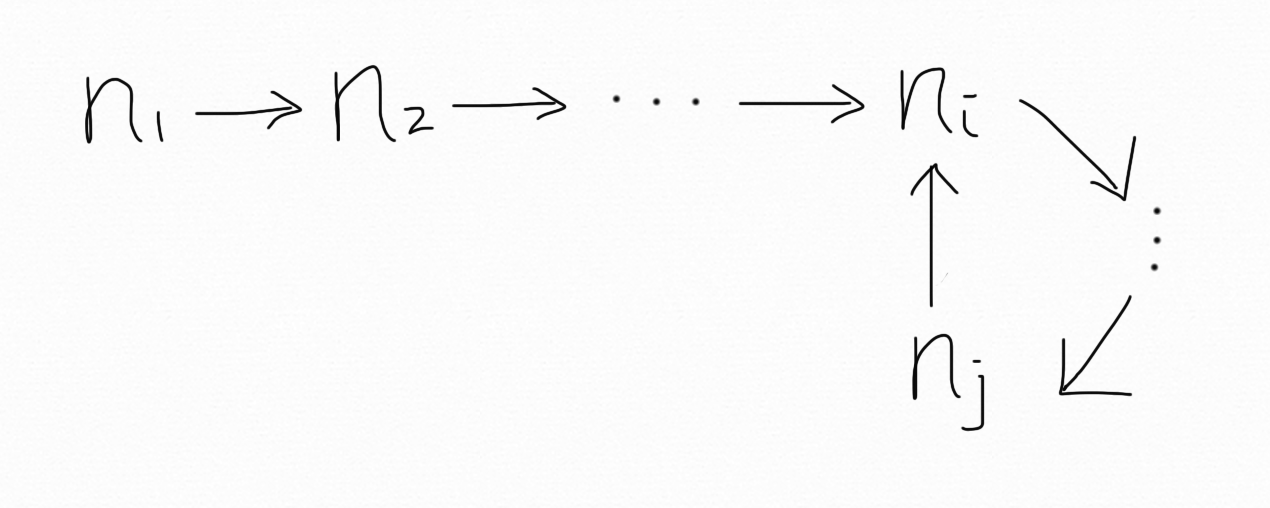 n₁ → n₂ → ··· → nᵢ
nⱼ